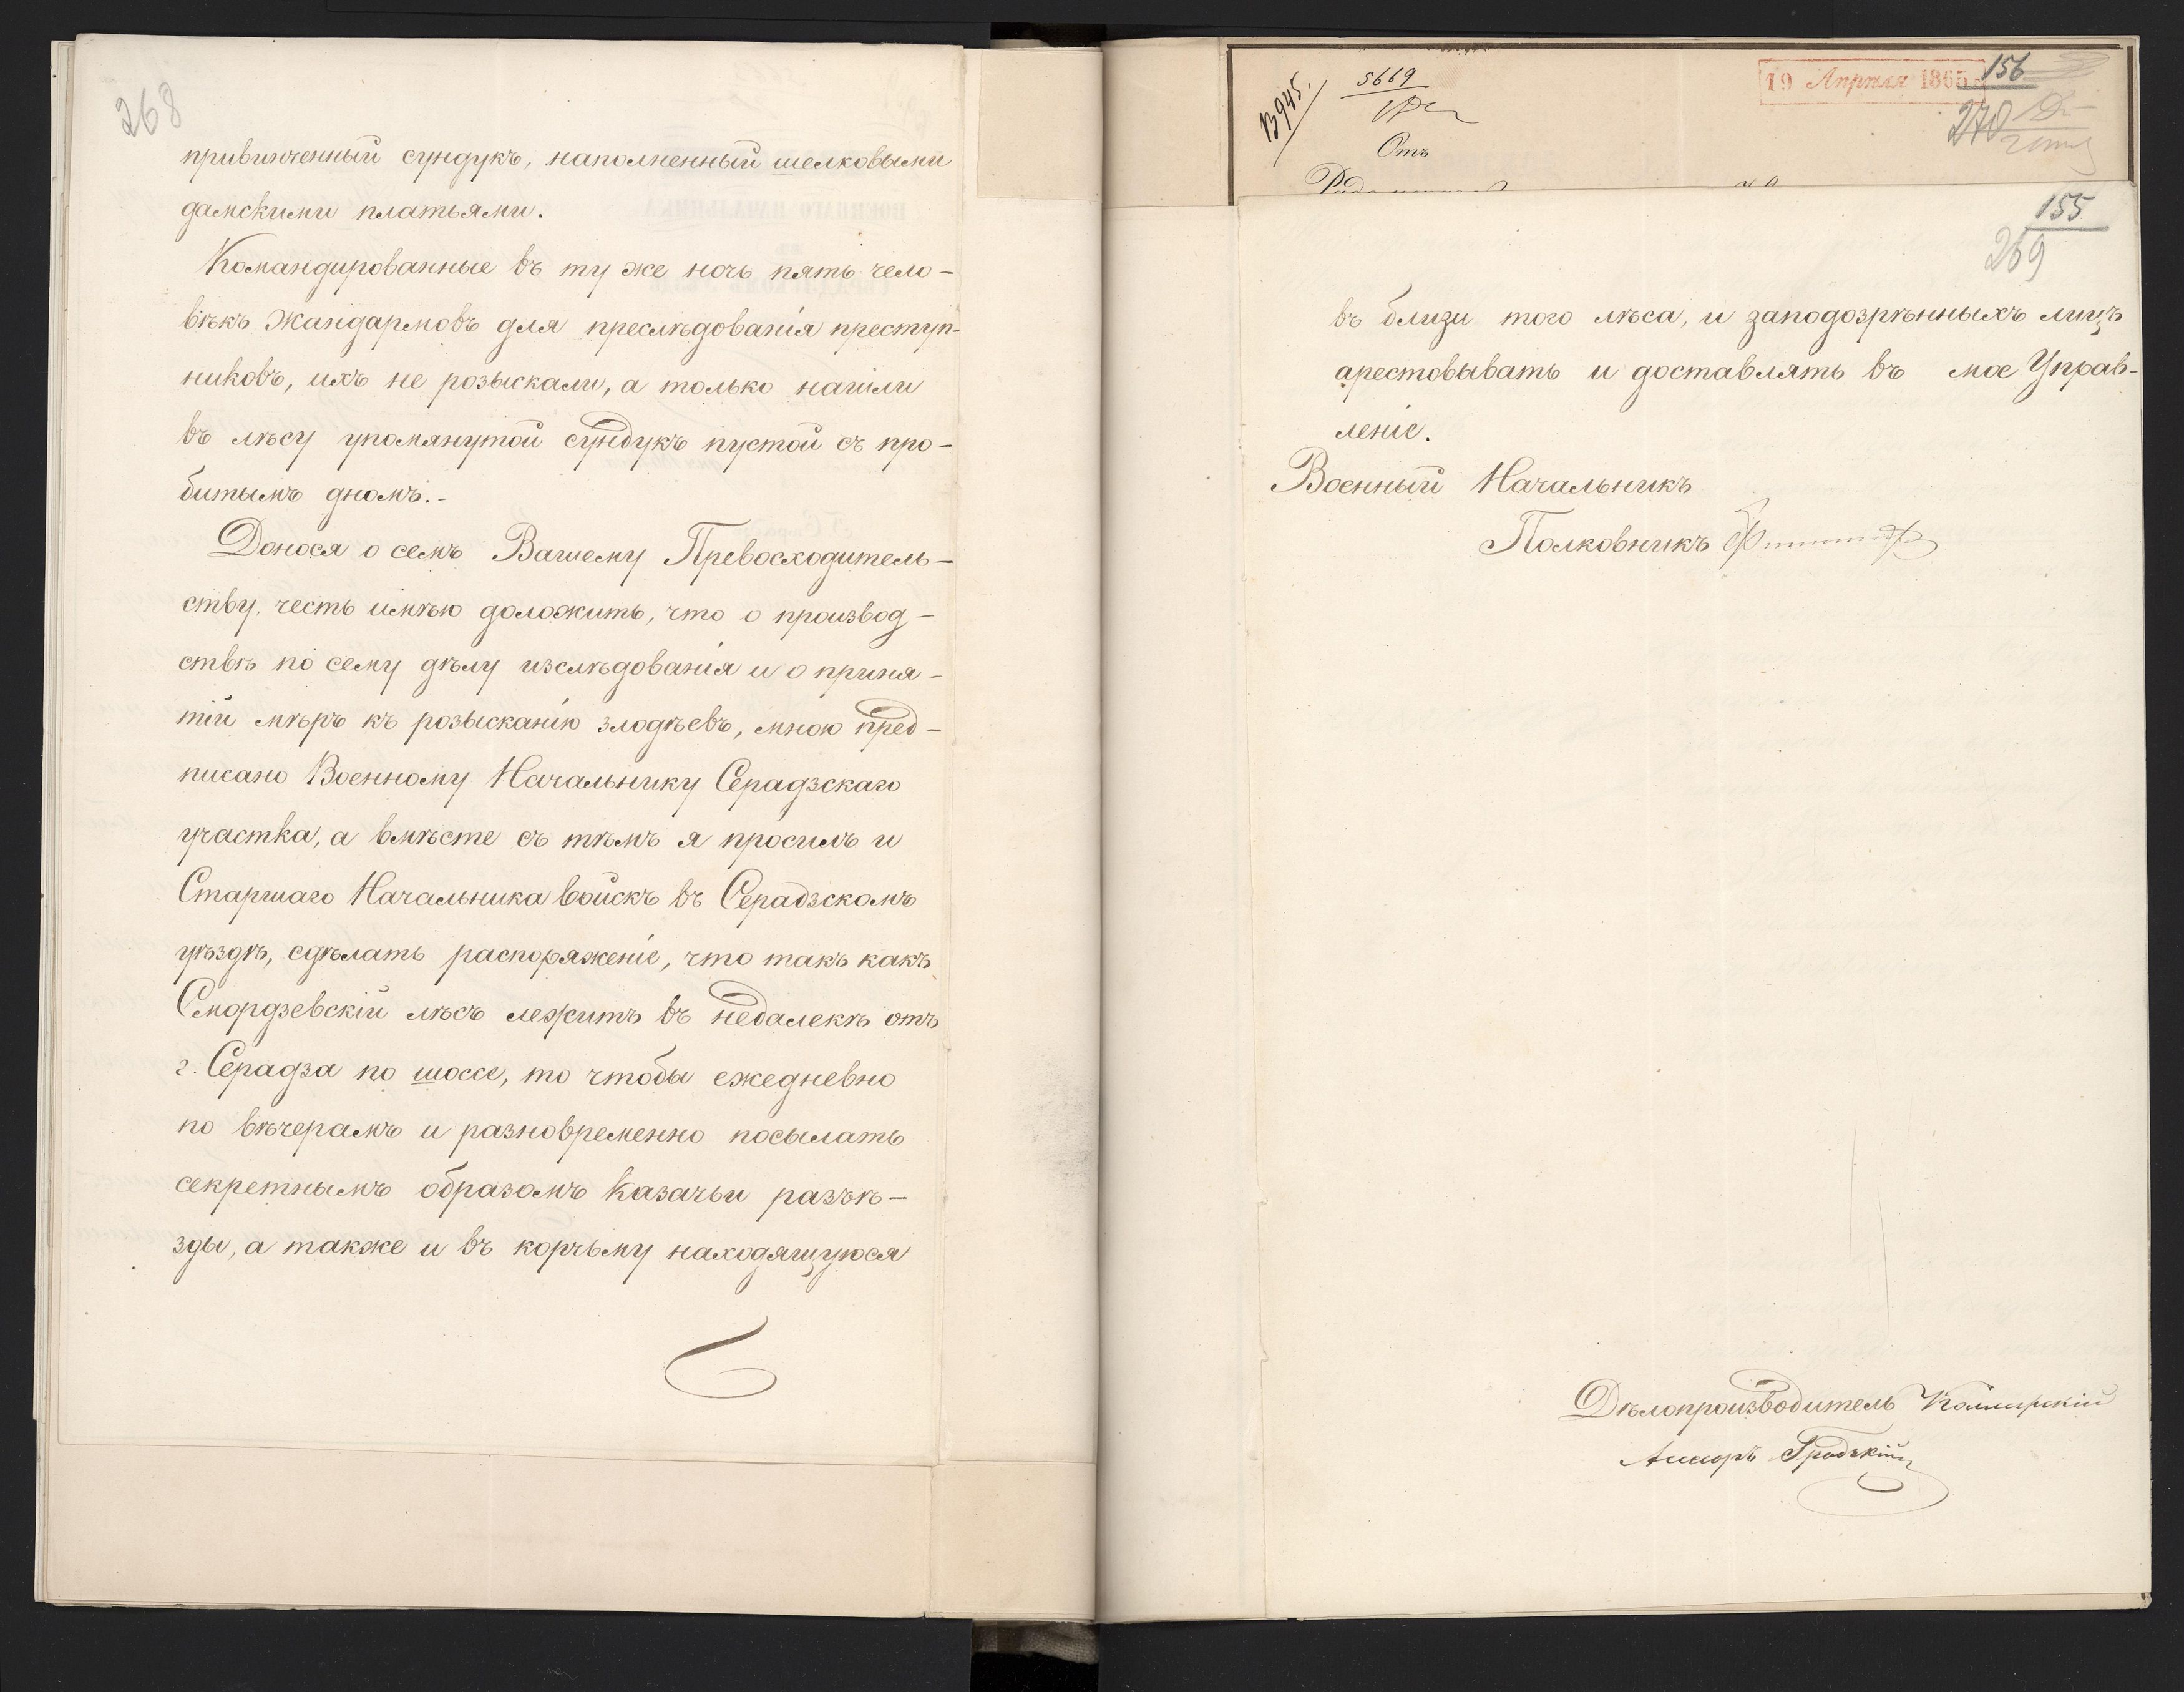 268
привинченный сундукъ, наполненный шелковыми
дамскими платьями.
Командированные въ ту же ночь пять чело-
вѣкъ Жандармовъ для преслѣдованія преступ-
никовъ, ихъ не розыскали, а только нашли
въ лѣсу упомянутой сундукъ пустой съ про-
битымъ дномъ.-
Донося о семъ Вашему Превосходитель-
ству, честь имѣю доложить, что о производ-
ствѣ по сему дѣлу изслѣдованія и о приня-
тіи мѣръ къ розысканію злодѣевъ, мною пред-
писано Военному Начальнику Серадзскаго
участка, а вмѣсте съ тѣмъ я просилъ и
Старшаго Начальника войскъ въ Серадзскомъ
уѣздѣ, сдѣлать распоряженіе, что такъ какъ
Смордзевскій лѣсъ лежитъ въ недалекѣ отъ
г. Серадза по шоссе, то чтобы ежедневно
по вѣчерамъ и разновременно посылать
секретнымъ образомъ казачьи разъѣ-
зды, а также и въ корчьму находящуюся
5669
Отъ
19 Апрѣля 1865
156
270
155
269
въ близи того лѣса, и заподозрѣнныхъ лицъ
арестовывать и доставлять въ мое Управ-
леніе.
Военный Начальникъ
Полковникъ
Дѣлопроизводитель